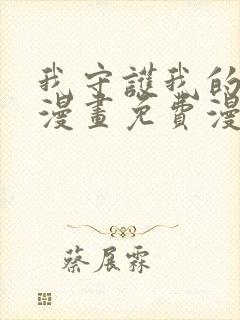 我守護我的
漫畫免費漫
蔡展霖